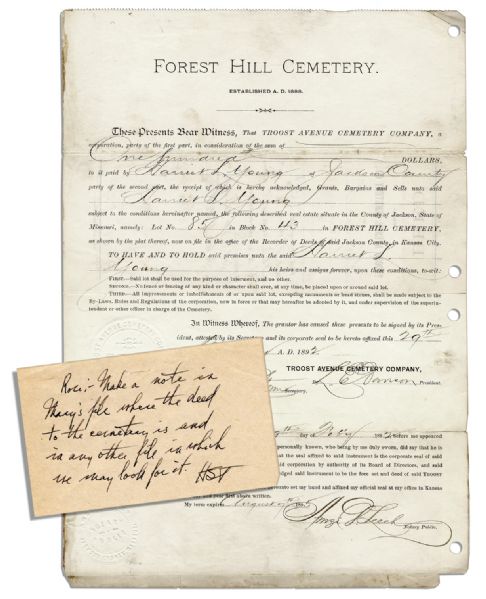 FOREST HILL CEMETERY.
ESTABLISHED A. D. 1888.
These Presents Bear Witness, That TROOST AVENUE CEMETERY COMPANY, a
corporation, party of the first part, in consideration of the sum of
One hundred DOLLARS,
to it paid by Harriet L. Young of Jackson County
party of the second part, the receipt of which is hereby acknowledged, Grants, Bargains and Sells unto said
Harriet L. Young
subject to the conditions hereinafter named, the following described real estate situate in the County of Jackson, State of
Missouri, namely: Lot No. 85 in Block No. 43 in FOREST HILL CEMETERY,
as shown by the plat thereof, now on file in the office of the Recorder of Deeds of said Jackson County, in Kansas City.
TO HAVE AND TO HOLD said premises unto the said Harriet L.
Young his heirs and assigns forever, upon these conditions, to-wit:
FIRST.—Said lot shall be used for the purpose of interment, and no other.
SECOND.—No fence or fencing of any kind or character shall ever, at any time, be placed upon or around said lot.
THIRD.—All improvements or embellishments of or upon said lot, excepting monuments or head stones, shall be made subject to the
By-Laws, Rules and Regulations of the corporation, now in force or that may hereafter be adopted by it, and under supervision of the superintendent
or other officer in charge of the Cemetery.
In Witness Whereof, The grantor has caused these presents to be signed by its President,
attested by its Secretary and its corporate seal to be hereto affixed this 29th
A. D. 1892
TROOST AVENUE CEMETERY COMPANY,
President.
Secretary.
day of Feby 1892 before me appeared
personally known, who being by me duly sworn, did say that he is
that the seal affixed to said instrument is the corporate seal of said
corporation by authority of its Board of Directors, and said
acknowledged said instrument to be the free act and deed of said TROOST
set my hand and affixed my official seal at my office in Kansas
year first above written.
My term expires August
Notary Public.
Rose:- Make a note in
Mary's file where the deed
to the cemetery is and
in any other file in which
we may look for it. HST